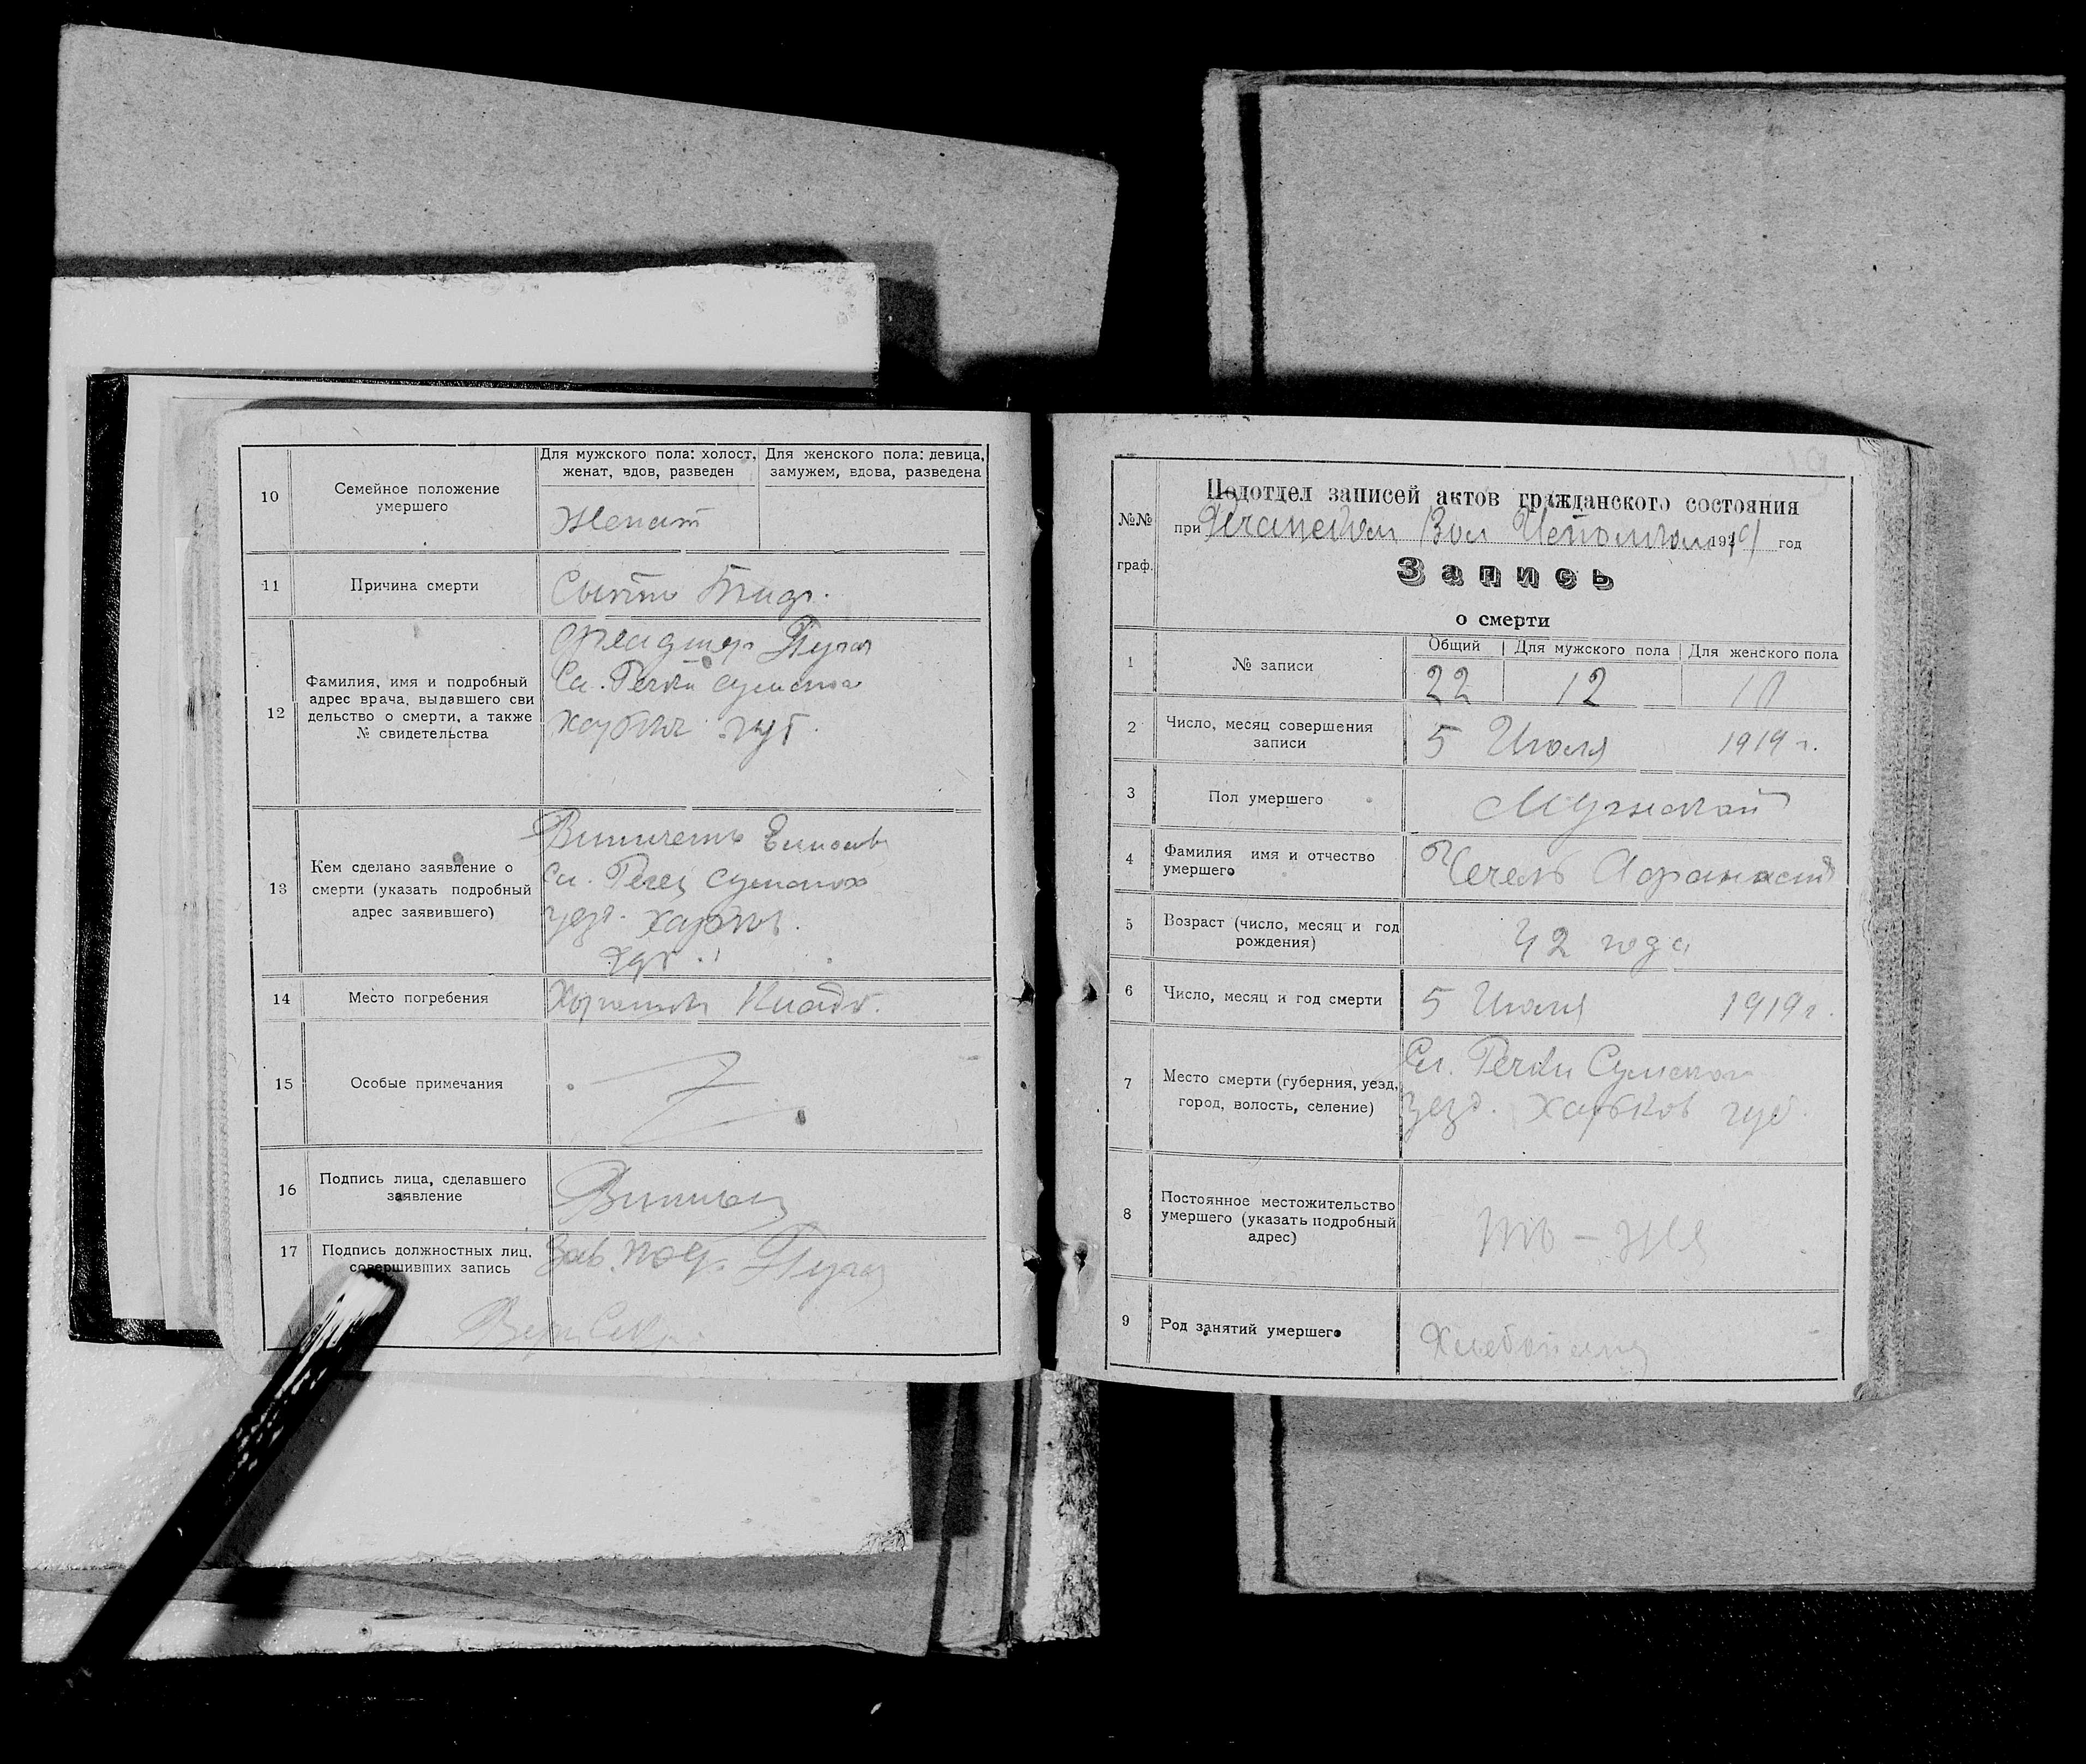 10
Семейное положение
умершего
Для мужского пола: холост,
женат, вдов, разведен
Для женского пола: девица,
замужем, вдова, разведена
Женат
11
Причина смерти
12
Фамилия, имя и подробный
адрес врача, выдавшего сви
дельство о смерти, а также
№ свидетельства
Сл. Речки Сумского
губ.
13
Кем сделано заявление о
смерти (указать подробный
адрес заявившего)
Сл. Сумского
уезд. Харьков.
губ.
14
Место погребения
15
Особые примечания
16
Подпись лица, сделавшего
заявление
17
Подпись должностных лиц,
совершивших запись
Зав. под.
№№
граф.
Подотдел записей актов гражданского состояния
при Вол 1919 год
Запись
о смерти
1
№ записи
Общий
Для мужского пола
Для женского пола
22
12
10
2
Число, месяц совершения
записи
5 Июля 1919 г.
3
Пол умершего
Мужской
4
Фамилия имя и отчество
умершего
Чечель Афанасий
5
Возраст (число, месяц и год
рождения)
42 года
6
Число, месяц и год смерти
5 Июля 1919 г.
7
Место смерти (губерния, уезд,
город, волость, селение)
Сл. Речки Сумского
уезд. Харьков губ.
8
Постоянное местожительство
умершего (указать подробный
адрес)
9
Род занятий умершего